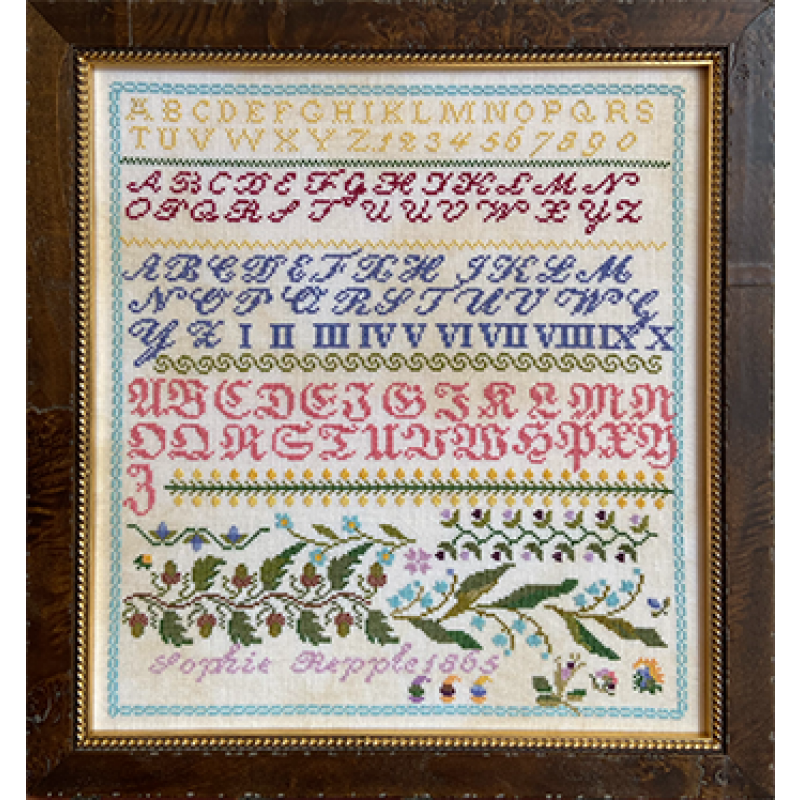 ABCDEFGHIKLMNOPQRS
TUVWXYZ1234567890
ABCDEFGHIKLMN
OPQRSTUUVWXYZ
ABCDEFXHIKLM
NOPQRSTUUVWG
YZ I II III IV V VI VII VIII IX X
ABCDEJGIKLMN
OQRSTUVWHPXY
Z
Sophie Repple 1865